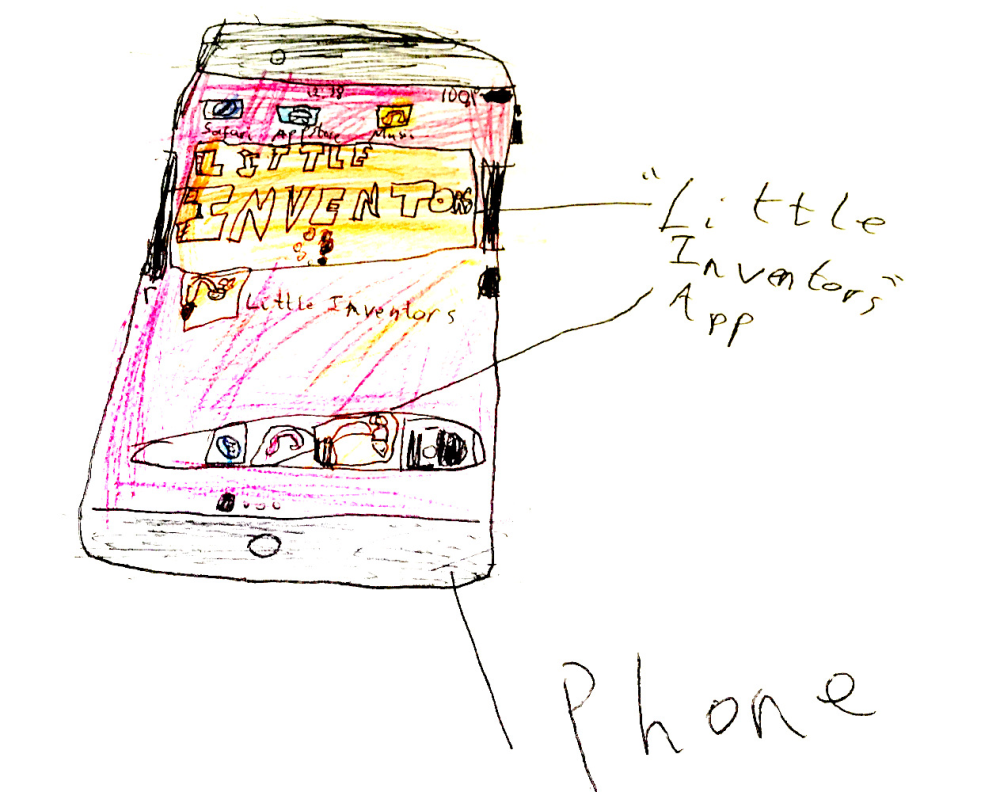 100%
Safari App Store Music
LITTLE
INVENTORS
Little Inventors
"Little
Inventors"
App
Phone